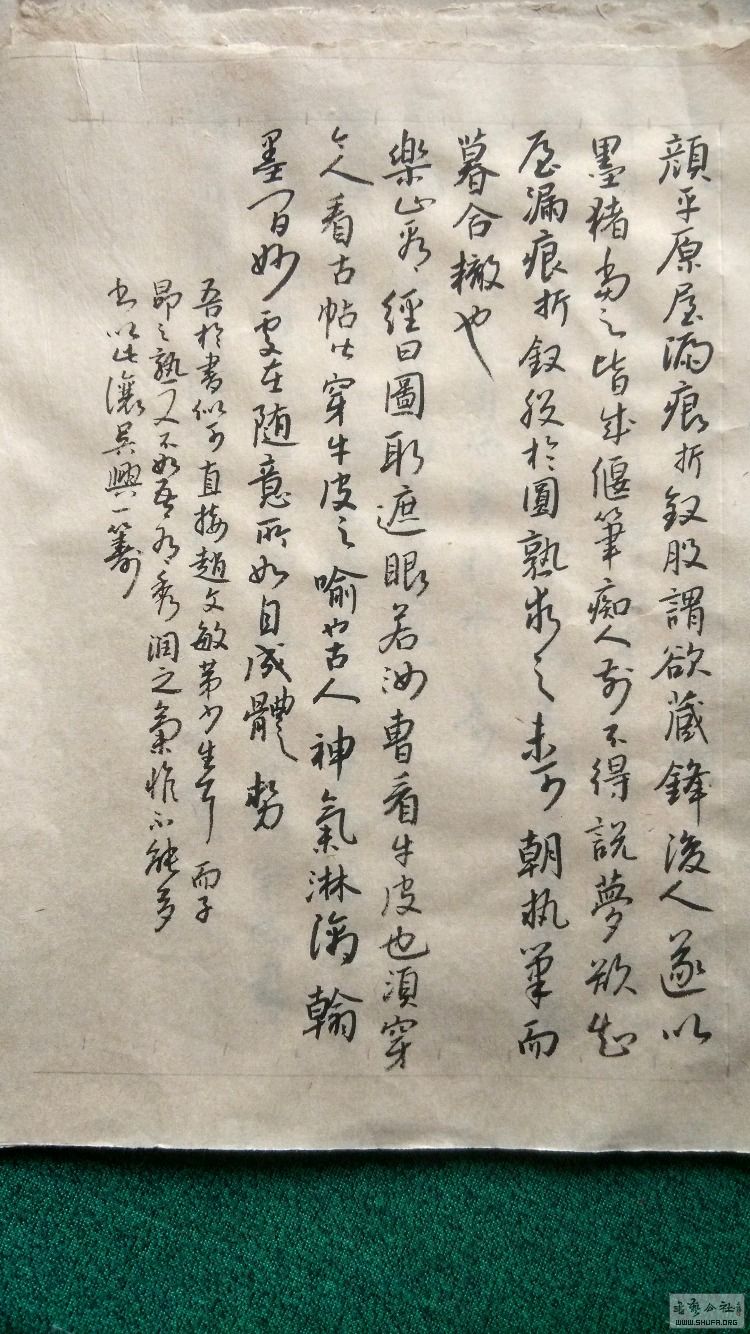 顔平原屋漏痕折釵股謂欲藏鋒後人遂以
墨猪當之皆成偃筆痴人前不得說夢欲知
屋漏痕折釵股於圓熟求之未可朝執筆而
暮合轍也
藥山看經曰圖取遮眼若汝曹看牛皮也須穿
今人看古帖皆穿牛皮之喻也古人神氣淋漓翰
墨間妙處在隨意所如自成體勢
吾於書似可直接趙文敏第少生耳而子
昂之熟又不如吾有秀潤之氣惟不能多
書以此讓吳興一籌
WWW.SHUFA.ORG